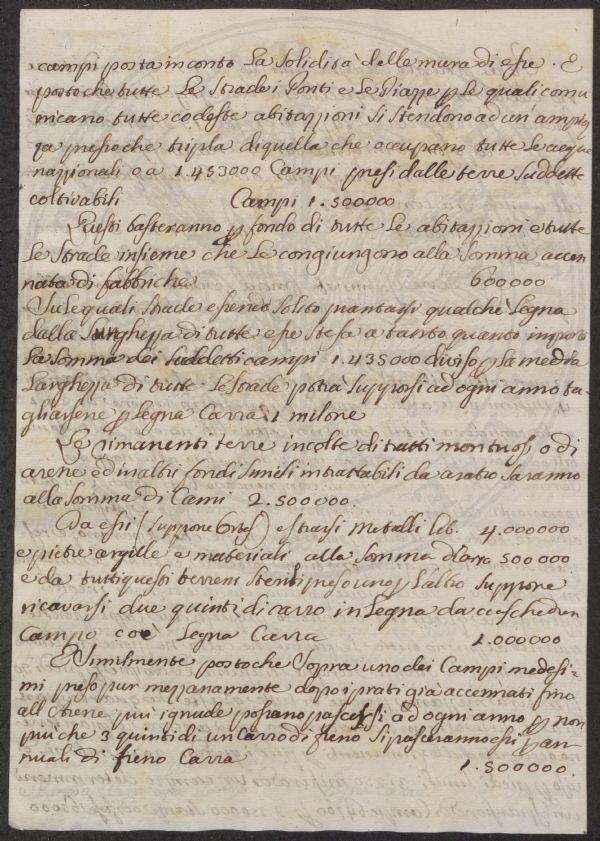 campi posta in conto La Solidità delle mura di esse. E
posto che tutte Le Strade i Ponti e Le Piazze p Le quali comu
nicano tutte codeste abitazzioni si stendono ad un'ampiez
za presso che tripla di quella che occupano tutte Le acque
nazzionali o a 1.453000 Campi presi dalle terre suddette
coltivabili Campi 1.500000
Questi basteranno p fondo di tutte Le abitazzioni e tutte
Le Strade insieme che Le congiungono alla Somma accen
nata di fabbriche 600000
Sulequali strade essendo Solito piantarsi qualche Legna
dalla Lunghezza di tutte esse stesa a tanto quanto importa
La Somma dei suddetti campi 1.435000 diviso p La media
Larghezza di tutte Le Strade potrà supporsi ad ogni anno ta-
gliarsene p Legna Carra 1 milone
Le rimanenti terre incolte di tratti montuosi o di
arene ed in altri fondi simili intrattabili da aratro saranno
alla Somma di Campi 2.500000.
Da essi (Suppone Ortes) estrarsi Metalli lib. 4.000000
e pietre argille e materiali alla Somma di Carra 500000
e da tutti questi terreni Stenti preso uno p L'altro Suppone
ricavarsi due quinti di carro in Legna da ciaschedun
Campo cioè Legna Carra 1.000000
E Similmente posto che Sopra uno dei Campi medesi-
mi preso pur mezzanamente dopo i prati già accennati fino
all'Arene più ignude possano pascersi ad ogni anno p non
più che 3 quinti di un Carro di fieno si pasceranno essi p an-
nuali di fieno Carra 1.500000.